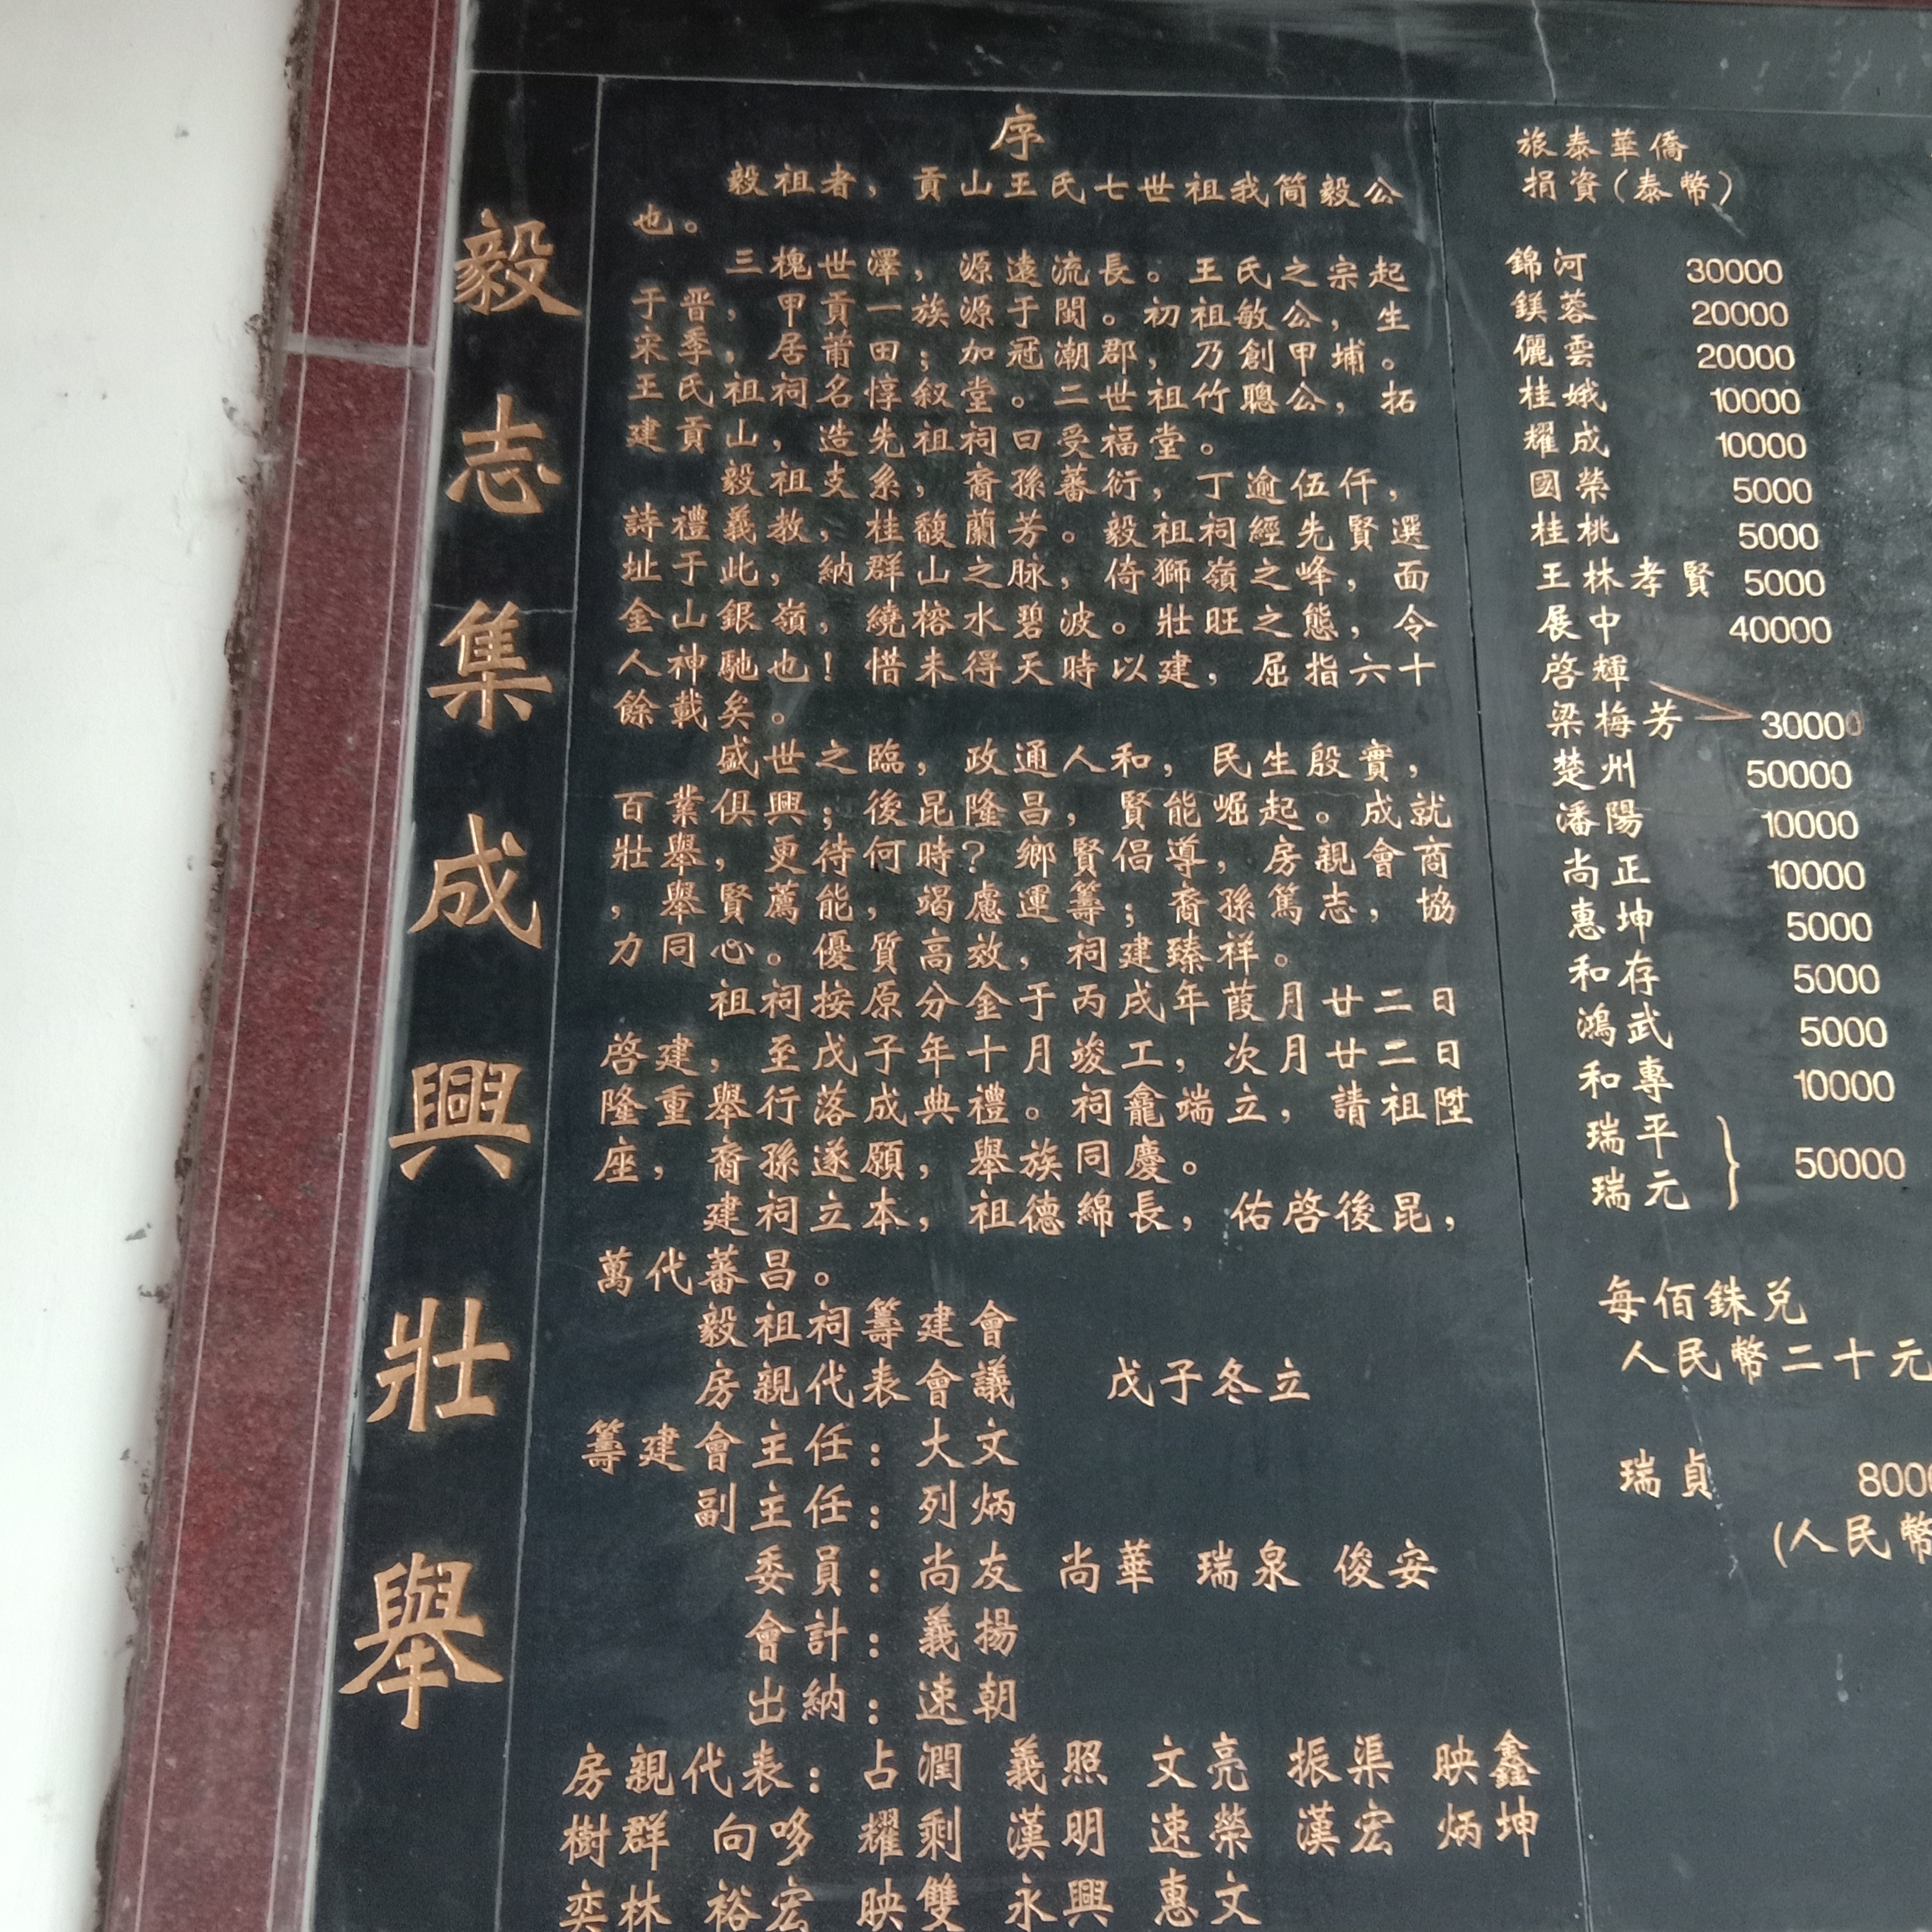 毅志集成興壯舉
序
毅祖者，貢山王氏七世祖我简毅公
也。
三槐世澤，源遠流長。王氏之宗起
于晋，甲貢一族源于閩。初祖敏公，生
宋季，居莆田；加冠潮郡，乃創甲埔。
王氏祖祠名惇叙堂。二世祖竹聰公，拓
建貢山，造先祖祠曰受福堂。
毅祖支系，裔孫蕃衍，丁逾伍仟，
詩禮義教，桂馥蘭芳。毅祖祠經先賢選
址于此，納群山之脉，倚獅嶺之峰，面
金山銀嶺，繞榕水碧波。壯旺之態，令
人神馳也！惜未得天時以建，屈指六十
餘載矣。
盛世之臨，政通人和，民生殷實，
百業俱興；後昆隆昌，賢能崛起。成就
壯舉，更待何時？鄉賢倡導，房親會商
，舉賢薦能，竭慮運籌；裔孫篤志，協
力同心。優質高效，祠建臻祥。
祖祠按原分金于丙戌年葭月廿二日
啓建，至戊子年十月竣工，次月廿二日
隆重舉行落成典禮。祠龕端立，請祖陞
座，裔孫遂願，舉族同慶。
建祠立本，祖德綿長，佑啓後昆，
萬代蕃昌。
毅祖祠籌建會
房親代表會議 戊子冬立
籌建會主任：大文
副主任：列炳
委員：尚友 尚華 瑞泉 俊安
會計：義揚
出納：速朝
房親代表：占潤 義照 文亮 振渠 映鑫
樹群 向哆 耀剩 漢明 速榮 漢宏 炳坤
奕林 裕宏 映雙 永興 惠文
旅泰華僑
捐資（泰幣）
錦河 30000
鎂蓉 20000
儷雲 20000
桂娥 10000
耀成 10000
國榮 5000
桂桃 5000
王林孝賢 5000
展中 40000
啓輝
梁梅芳 30000
楚州 50000
潘陽 10000
尚正 10000
惠坤 5000
和存 5000
鴻武 5000
和專 10000
瑞平
瑞元 } 50000
每佰銖兑
人民幣二十元
瑞貞 800
（人民幣